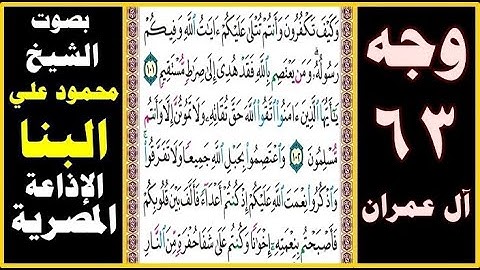 وجه
٦٣
آل عمران
وَكَيْفَ تَكْفُرُونَ وَأَنتُمْ تُتْلَىٰ عَلَيْكُمْ ءَايَٰتُ ٱللَّهِ وَفِيكُمْ
رَسُولُهُۥ وَمَن يَعْتَصِم بِٱللَّهِ فَقَدْ هُدِىَ إِلَىٰ صِرَٰطٍ مُّسْتَقِيمٍ ١٠١
يَٰٓأَيُّهَا ٱلَّذِينَ ءَامَنُوا۟ ٱتَّقُوا۟ ٱللَّهَ حَقَّ تُقَاتِهِۦ وَلَا تَمُوتُنَّ إِلَّا وَأَنتُم
مُّسْلِمُونَ ١٠٢ وَٱعْتَصِمُوا۟ بِحَبْلِ ٱللَّهِ جَمِيعًا وَلَا تَفَرَّقُوا۟
وَٱذْكُرُوا۟ نِعْمَتَ ٱللَّهِ عَلَيْكُمْ إِذْ كُنتُمْ أَعْدَآءً فَأَلَّفَ بَيْنَ قُلُوبِكُمْ
فَأَصْبَحْتُم بِنِعْمَتِهِۦٓ إِخْوَٰنًا وَكُنتُمْ عَلَىٰ شَفَا حُفْرَةٍ مِّنَ ٱلنَّارِ
بصوت
الشيخ
محمود علي
البنا
الإذاعة
المصرية